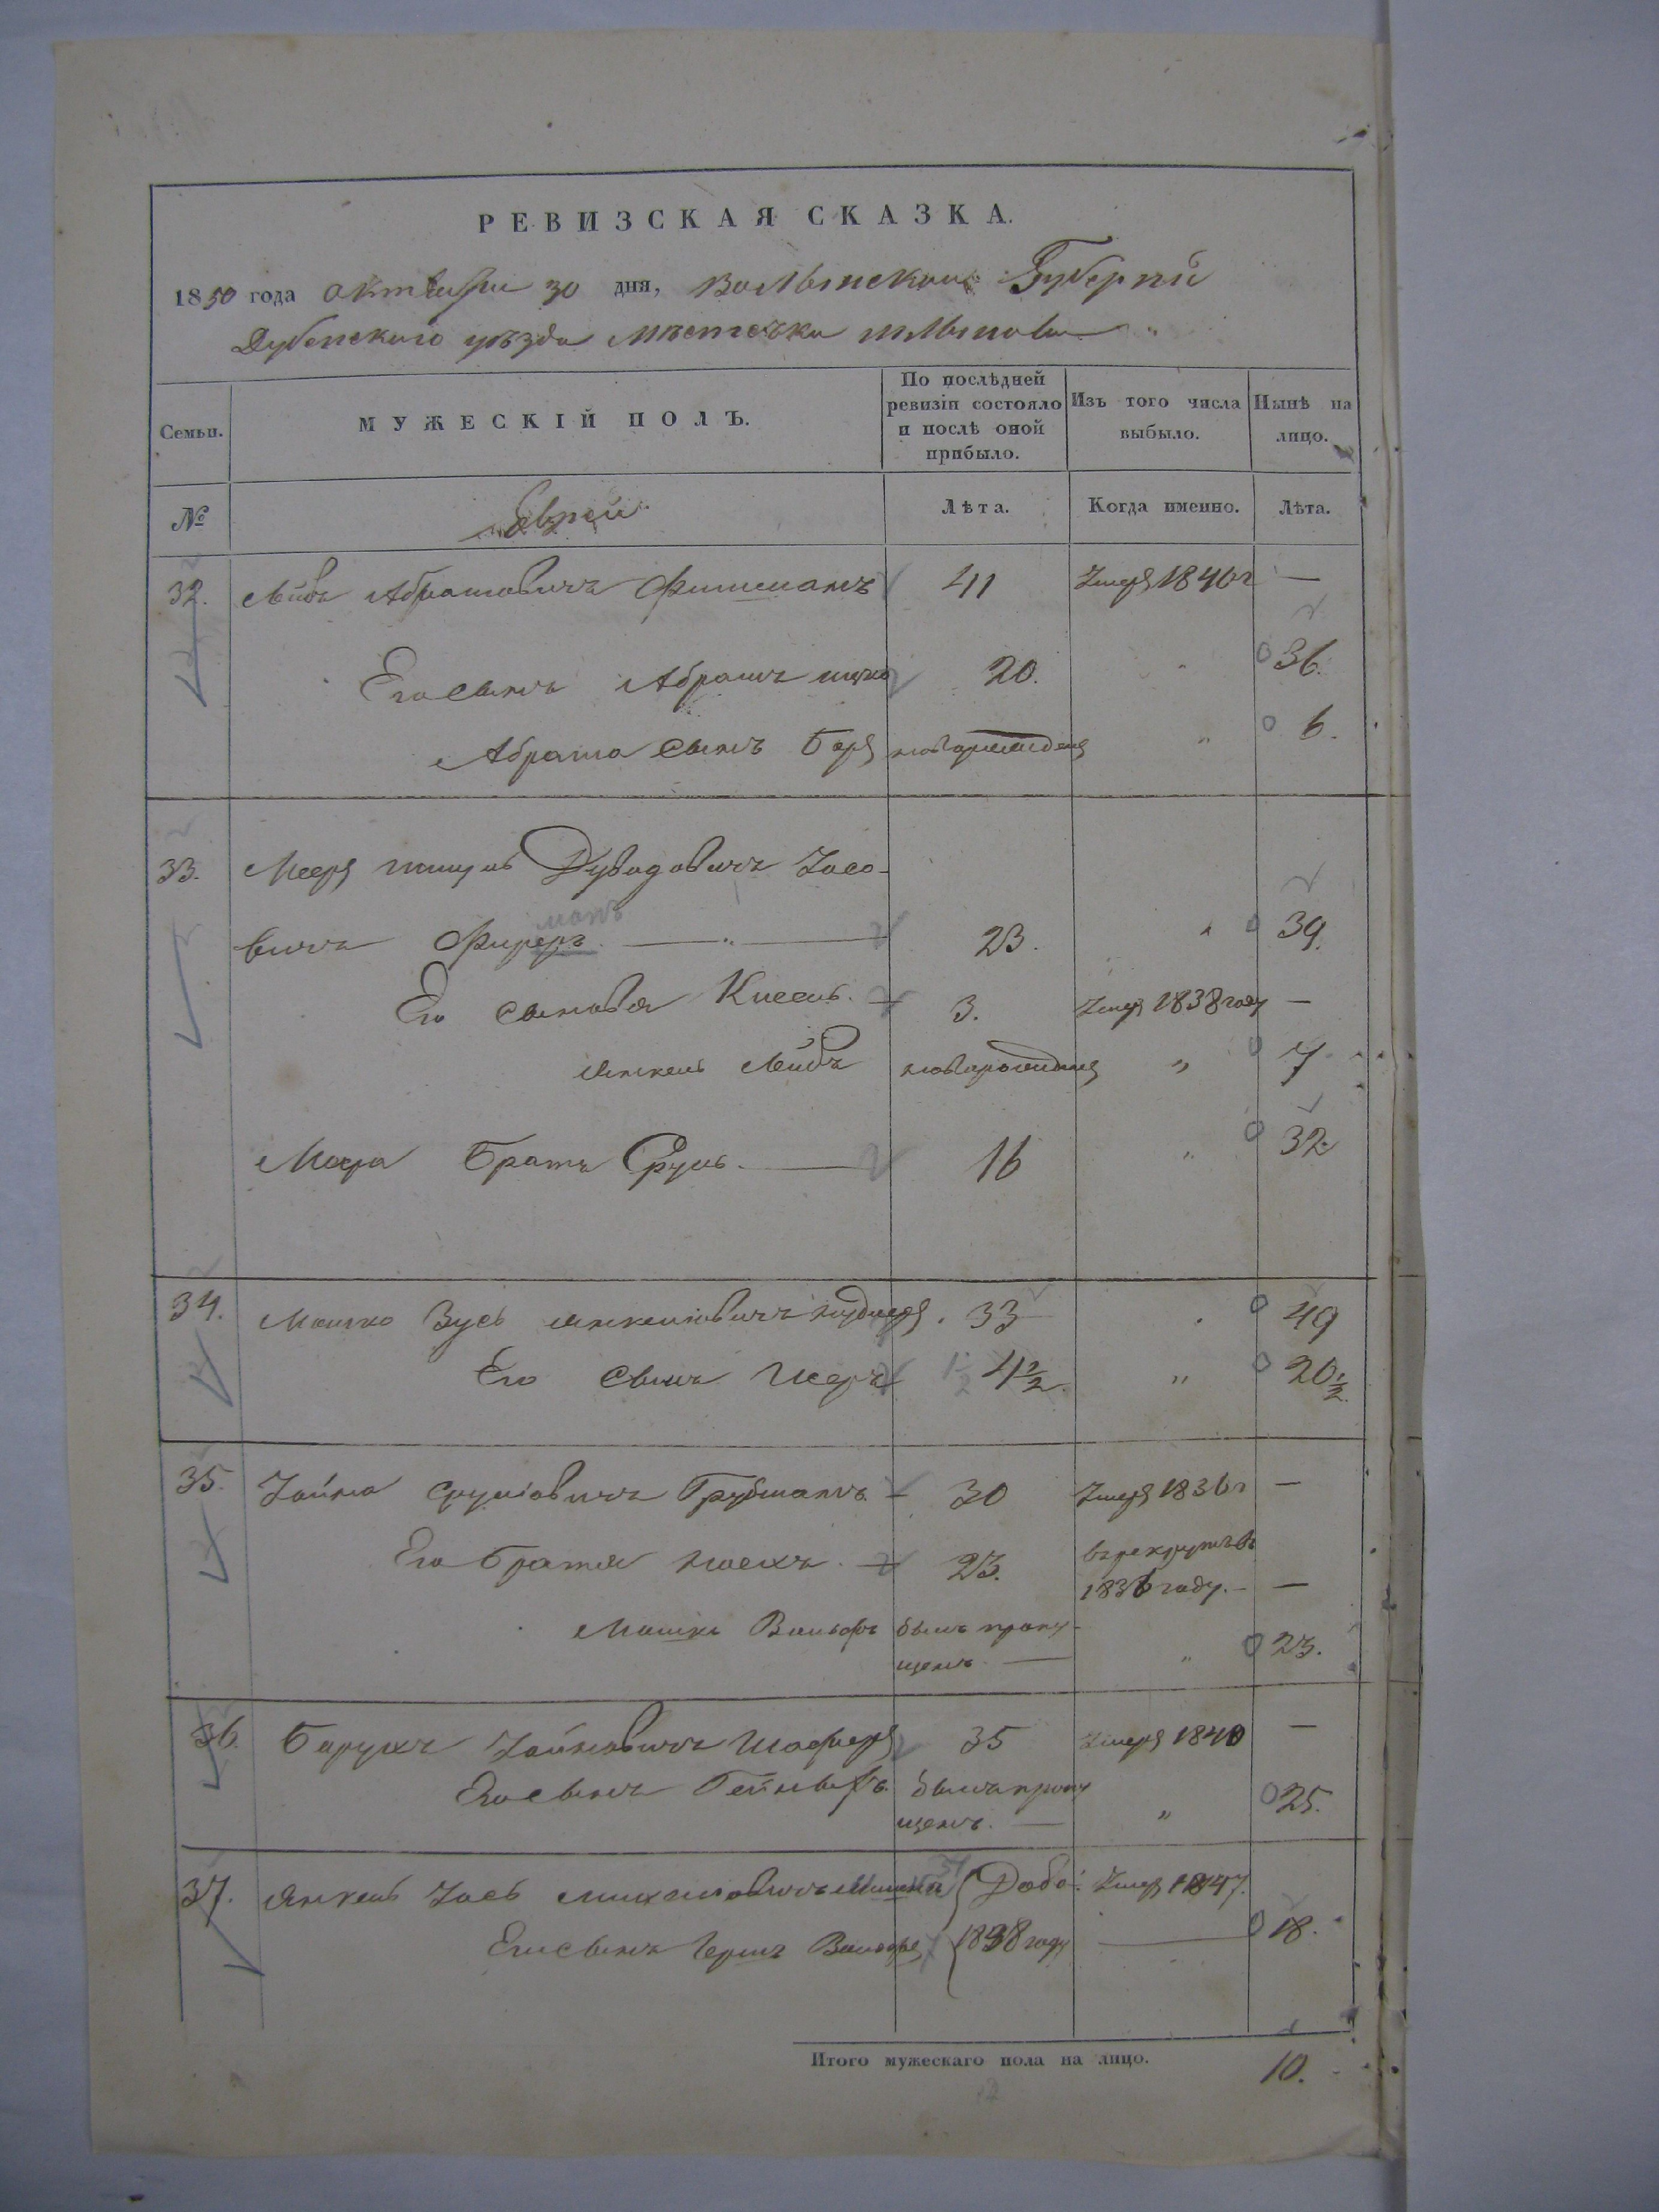 РЕВИЗСКАЯ СКАЗКА.
1850 года октября 30 дня, Волынской Губерніи
Дубенскаго уѣзда Мѣстечка Млынова
Семьи.
МУЖЕСКІЙ ПОЛЪ.
По послѣдней ревизіи состояло и послѣ оной прибыло.
Изъ того числа выбыло.
Нынѣ на лицо.
№
Евреи
Лѣта.
Когда именно.
Лѣта.
32. Лейба Абрамовичъ Фишманъ 41 Умеръ 1840 г —
Его сынъ Абрамъ Ицко 20. " 36.
Абрама сынъ Беръ новорожденъ " 6.
33. Мееръ Дувидовичъ Іосе-
вичъ Фиреръ манъ — " — 23. " 39.
Его сыновья Кисель. — 3. Умеръ 1838 году —
Янкель Лейба новорожденъ " 7
Меера Братъ Сруль. — 16 " 32.
34. Мошко Зусь Янкелювичъ . 33 . 49
Его сынъ Шеръ 1 1/2 4 1/2. " 20 1/2.
35. Хаима Срулювичъ Грубманъ. — 30 Умеръ 1836 г —
Его братья Ноехъ. — 23. въ рекруты въ
1836 году. — —
Мошко Вольфъ былъ пропу-
щенъ. — " 23.
36. Барухъ Хаимовичъ Шаферъ 35 Умеръ 1840 —
Его сынъ былъ пропу
щенъ. — " 25.
37. Янкель Іось Михелювичъ Доба: Умеръ 1847.
Его сынъ Гершъ Вольфъ 1838 году — 18.
Итого мужескаго пола на лицо. 10.